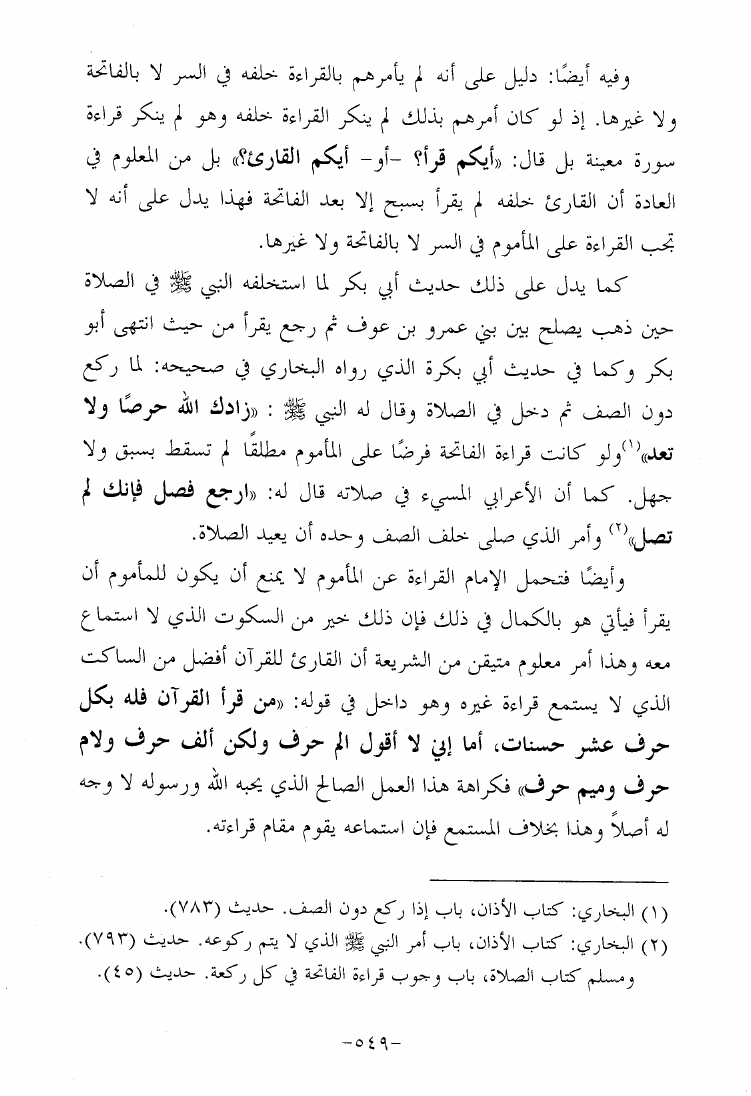 وفيه أيضًا: دليل على أنه لم يأمرهم بالقراءة خلفه في السر لا بالفاتحة
ولا غيرها. إذ لو كان أمرهم بذلك لم ينكر القراءة خلفه وهو لم ينكر قراءة
سورة معينة بل قال: «أيكم قرأ؟ -أو- أيكم القارئ؟» بل من المعلوم في
العادة أن القارئ خلفه لم يقرأ بسبح إلا بعد الفاتحة فهذا يدل على أنه لا
تجب القراءة على المأموم في السر لا بالفاتحة ولا غيرها.
كما يدل على ذلك حديث أبي بكر لما استخلفه النبي ﷺ في الصلاة
حين ذهب يصلح بين بني عمرو بن عوف ثم رجع يقرأ من حيث انتهى أبو
بكر وكما في حديث أبي بكرة الذي رواه البخاري في صحيحه: لما ركع
دون الصف ثم دخل في الصلاة وقال له النبي ﷺ : «زادك الله حرصًا ولا
تعد»(١) ولو كانت قراءة الفاتحة فرضًا على المأموم مطلقًا لم تسقط بسبق ولا
جهل. كما أن الأعرابي المسيء في صلاته قال له: «ارجع فصل فإنك لم
تصل»(٢) وأمر الذي صلى خلف الصف وحده أن يعيد الصلاة.
وأيضًا فتحمل الإمام القراءة عن المأموم لا يمنع أن يكون للمأموم أن
يقرأ فيأتي هو بالكمال في ذلك فإن ذلك خير من السكوت الذي لا استماع
معه وهذا أمر معلوم متيقن من الشريعة أن القارئ للقرآن أفضل من الساكت
الذي لا يستمع قراءة غيره وهو داخل في قوله: «من قرأ القرآن فله بكل
حرف عشر حسنات، أما إني لا أقول الم حرف ولكن ألف حرف ولام
حرف وميم حرف» فكراهة هذا العمل الصالح الذي يحبه الله ورسوله لا وجه
له أصلاً وهذا بخلاف المستمع فإن استماعه يقوم مقام قراءته.
(١) البخاري: كتاب الأذان، باب إذا ركع دون الصف. حديث (٧٨٣).
(٢) البخاري: كتاب الأذان، باب أمر النبي ﷺ الذي لا يتم ركوعه. حديث (٧٩٣).
ومسلم كتاب الصلاة، باب وجوب قراءة الفاتحة في كل ركعة. حديث (٤٥).
-٥٤٩-